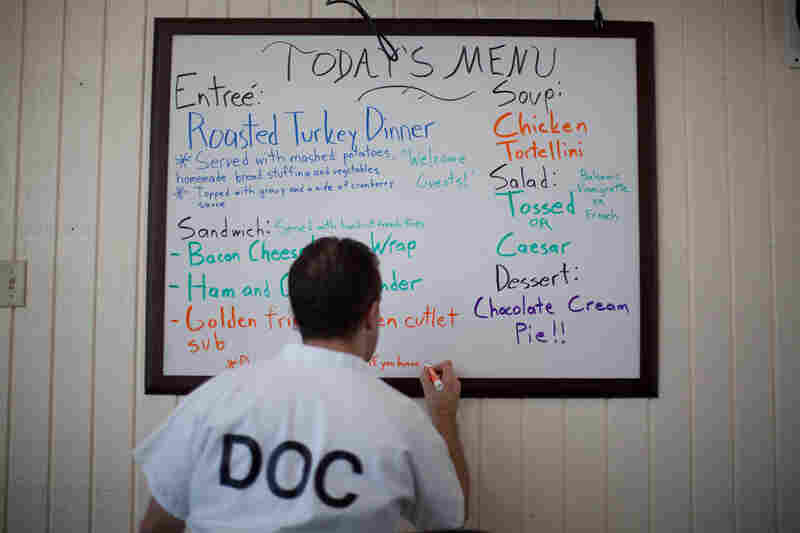 TODAY'S MENU
Entreé:
Roasted Turkey Dinner
* Served with mashed potatoes,
homemade bread stuffing and vegetables
* Topped with gravy and a side of cranberry
sauce
"Welcome
Guests!"
Sandwich: Served with french fries
- Bacon Chees Wrap
- Ham and
- Golden fri en cutlet
sub
* if you have
Soup:
Chicken
Tortellini
Salad:
Tossed
OR
Caesar
Balsamic
Vinaigrette
or
French
Dessert:
Chocolate Cream
Pie!!
DOC